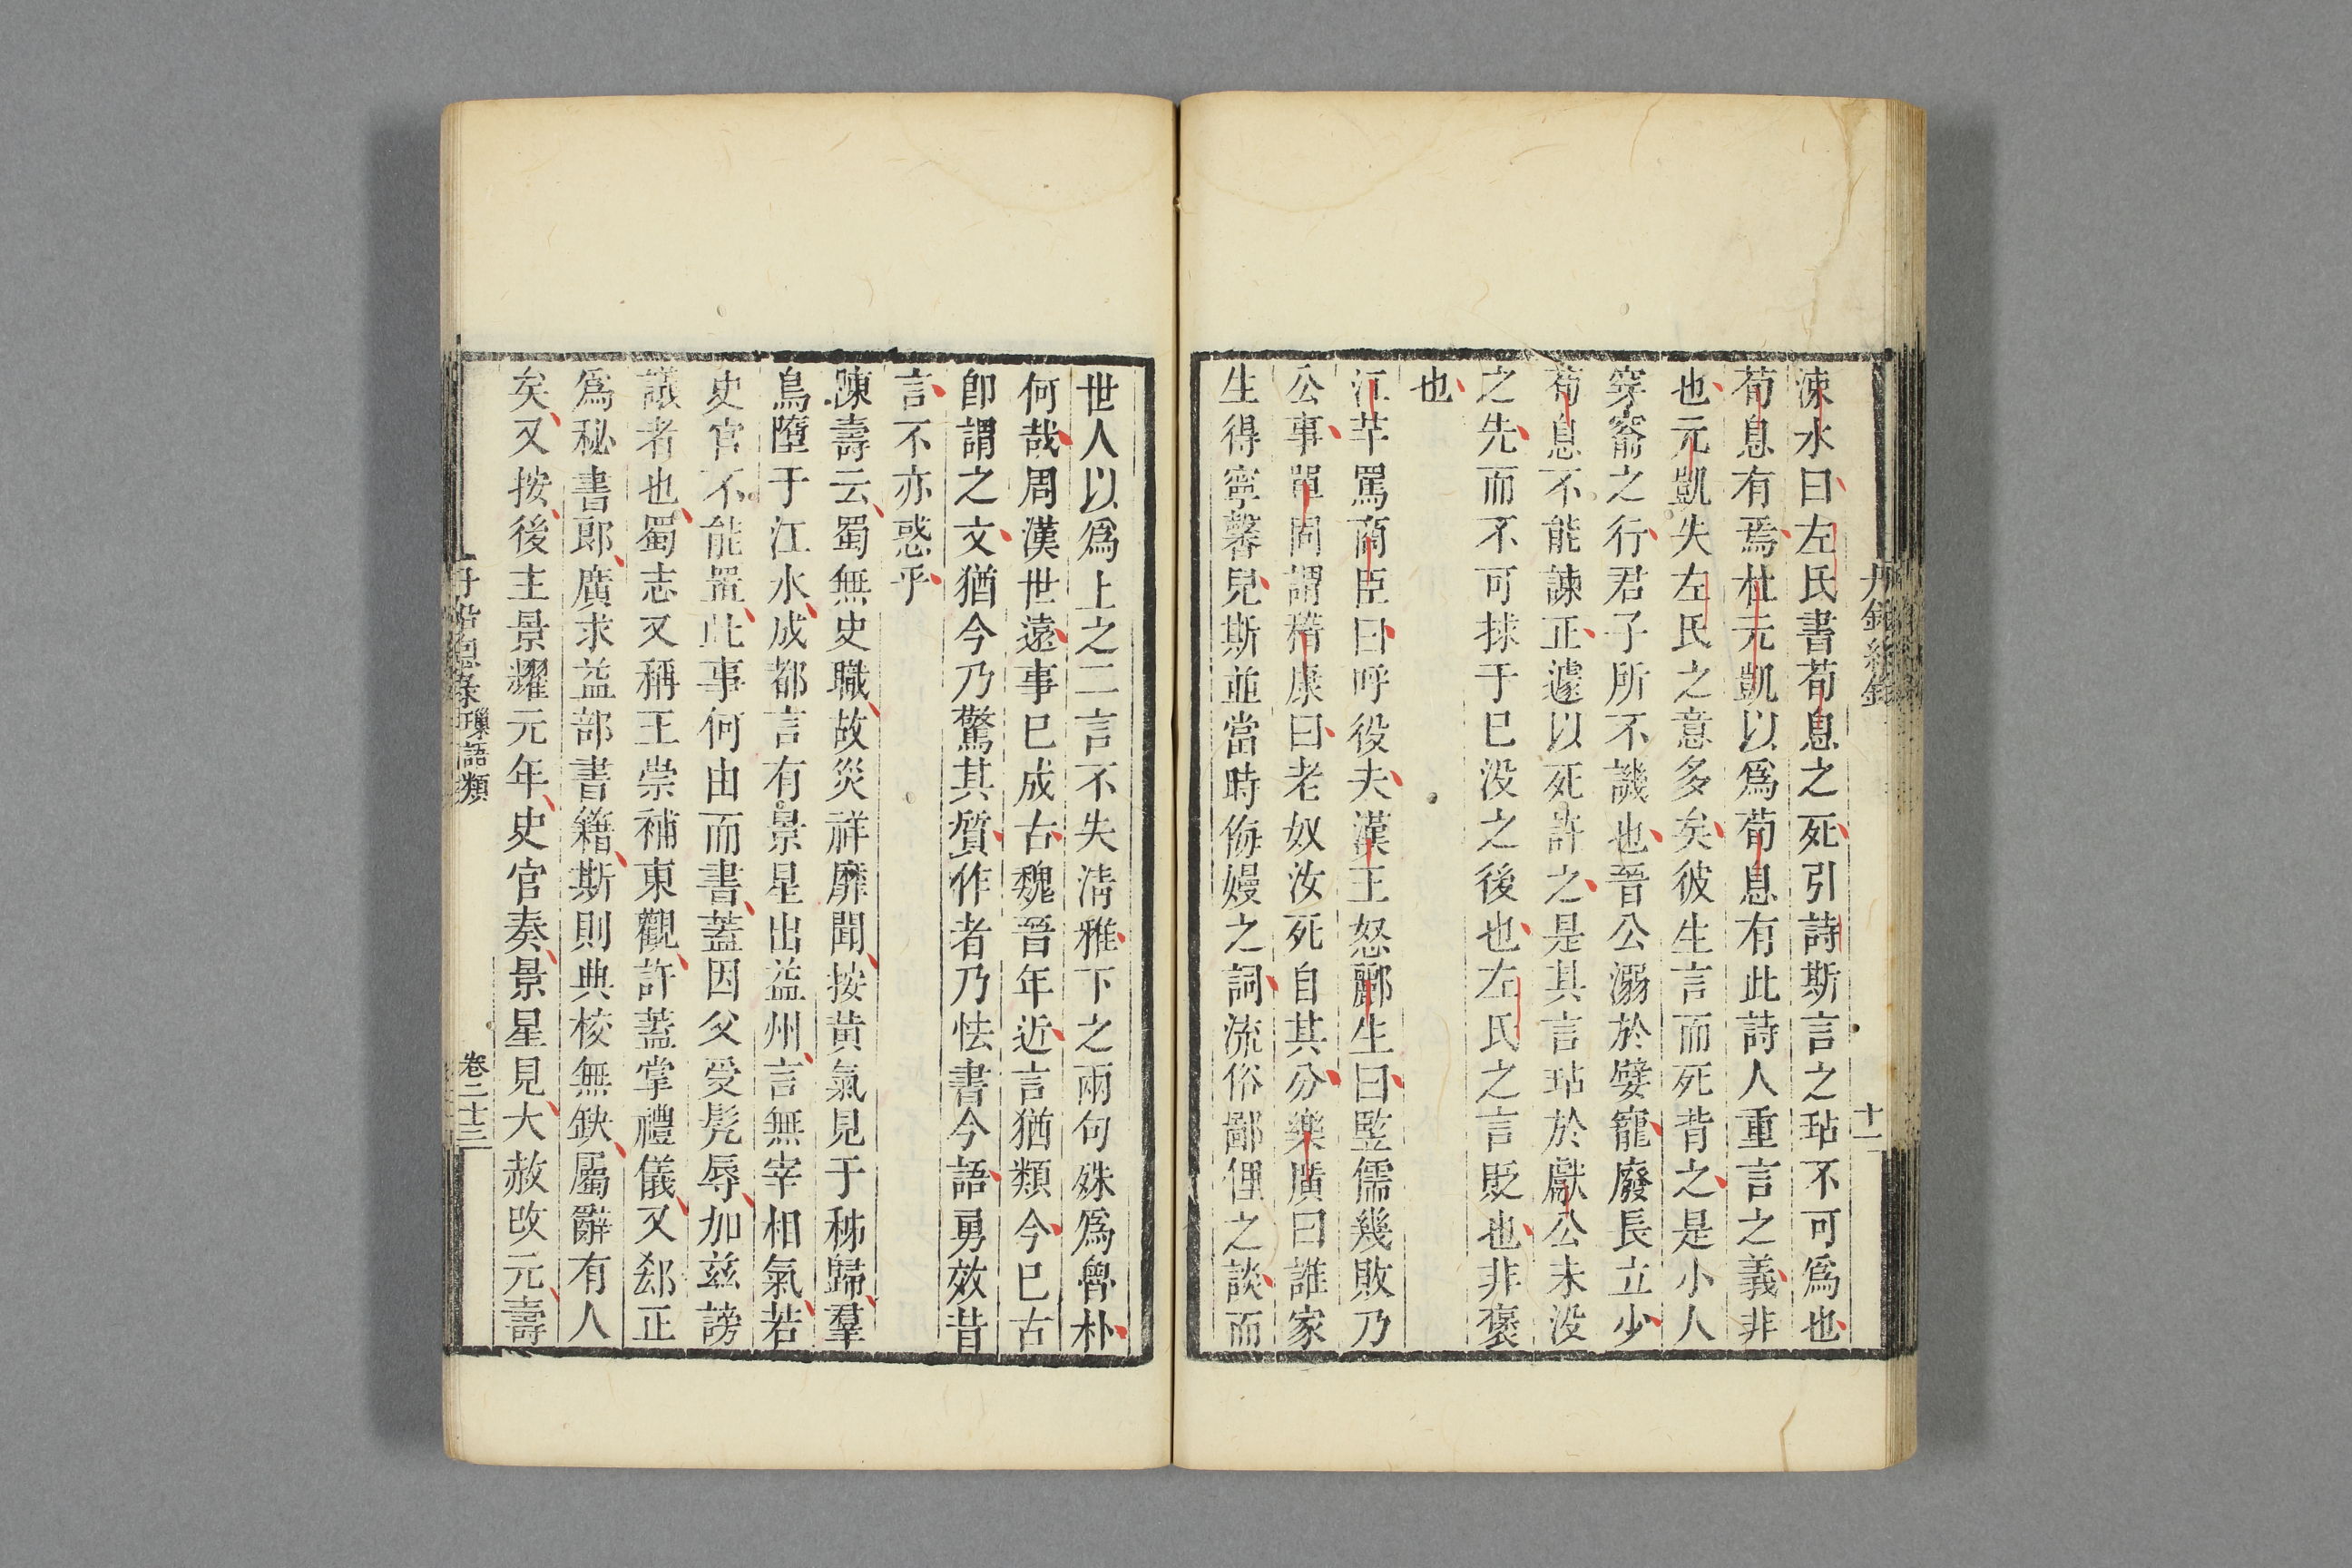 涑水曰左氏書荀息之死引詩斯言之玷不可爲也
荀息有焉杜元凱以爲荀息有此詩人重言之義非
也元凱失左氏之意多矣彼生言而死背之是小人
穿窬之行君子所不譏也晉公溺於嬖寵廢長立少
荀息不能諫正遽以死許之是其言玷於獻公未没
之先而不可捄于已没之後也左氏之言貶也非褒
也
江芊罵商臣曰呼役夫漢王怒酈生曰竪儒幾敗乃
公事單固謂楷康曰老奴汝死自其分樂廣曰誰家
生得寧馨兒斯並當時侮嫚之詞流俗鄙俚之談而
十一
世人以爲上之二言不失清雅下之兩句殊爲魯朴
何哉周漢世遠事已成古魏晉年近言猶類今已古
卽謂之文猶今乃驚其質作者乃怯書今語勇效昔
言不亦惑乎
陳壽云蜀無史職故災祥靡聞按黃氣見于秭歸羣
鳥墮于江水成都言有景星出益州言無宰相氣若
史官不能置此事何由而書蓋因父受髡辱加兹謗
議者也蜀志又稱王崇補東觀許蓋掌禮儀又郄正
爲秘書郎廣求益部書籍斯則典校無缺屬辭有人
矣又按後主景耀元年史官奏景星見大赦改元壽
丹鉛總錄 瑣語類 卷二十三